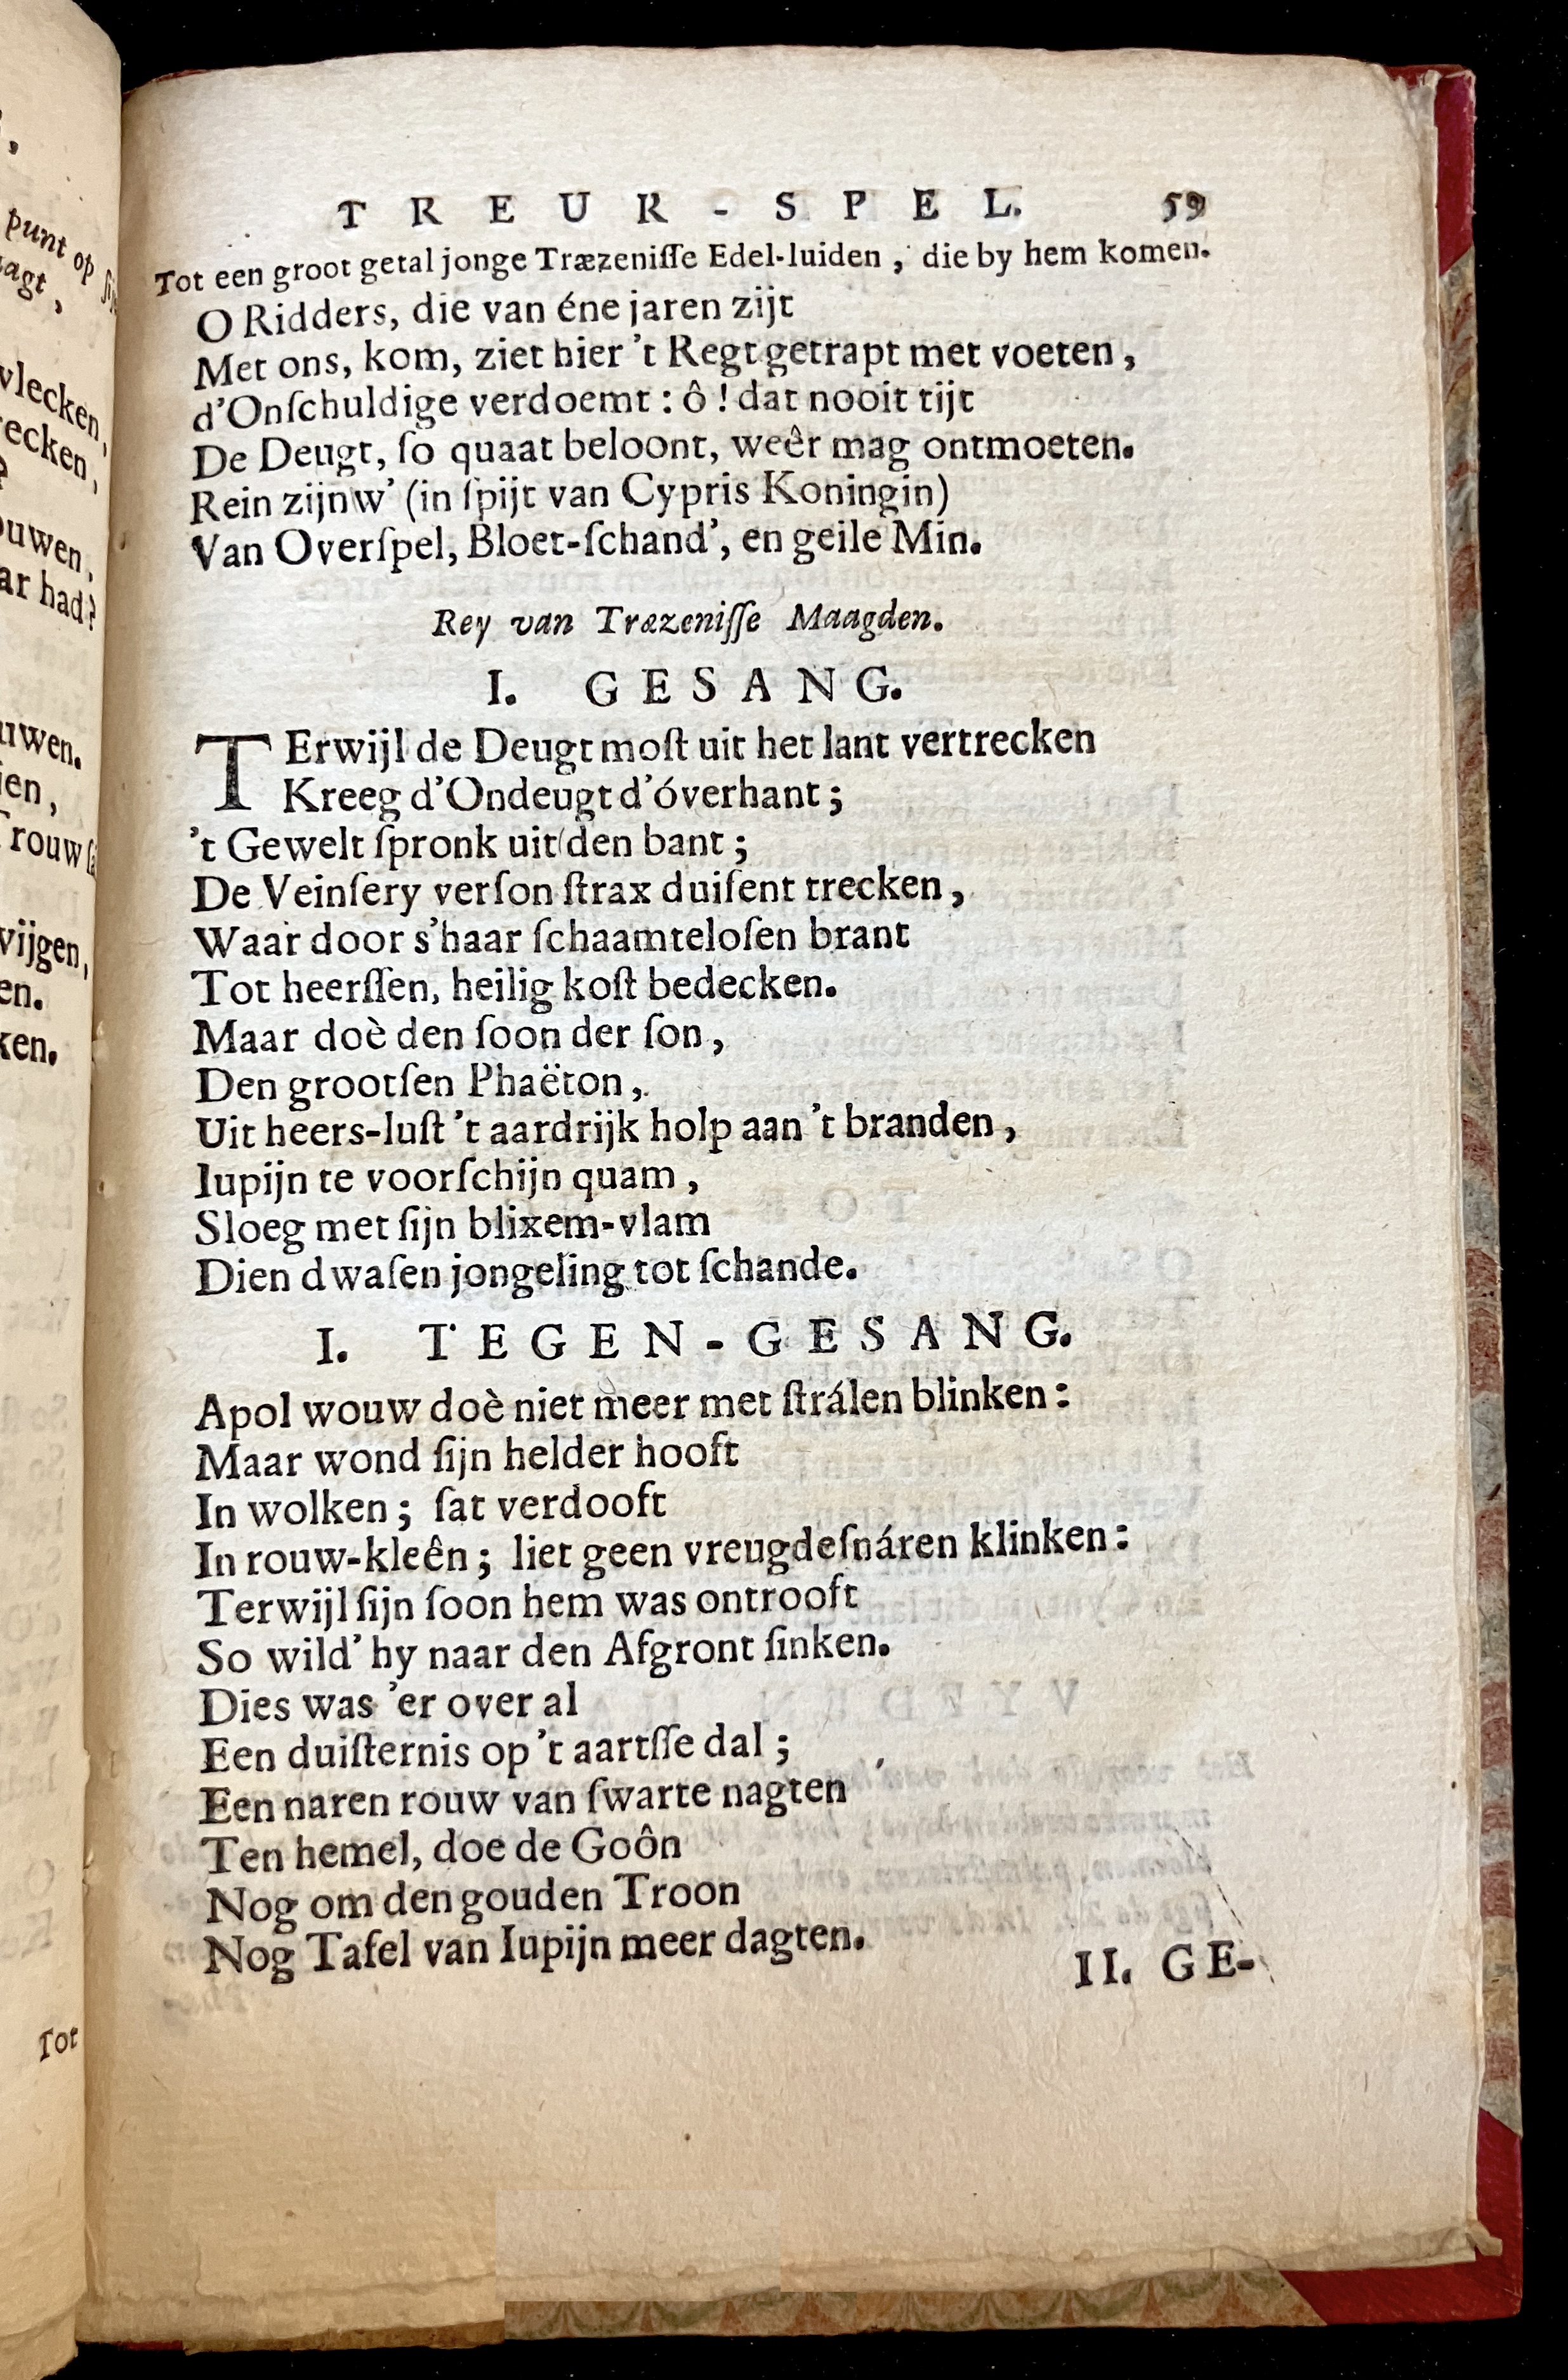 TREUR-SPEL. 59
Tot een groot getal jonge Træzeniſſe Edel-luiden, die by hem komen.
O Ridders, die van éne jaren zijt
Met ons, kom, ziet hier 't Regt getrapt met voeten,
d'Onſchuldige verdoemt: ô! dat nooit tijt
De Deugt, ſo quaat beloont, weêr mag ontmoeten.
Rein zijn w' (in ſpijt van Cypris Koningin)
Van Overſpel, Bloet-ſchand', en geile Min.
Rey van Træzeniſſe Maagden.
I. GESANG.
TErwijl de Deugt moſt uit het lant vertrecken
Kreeg d'Ondeugt d'óverhant;
't Gewelt ſpronk uit den bant;
De Veinſery verſon ſtrax duiſent trecken,
Waar door s'haar ſchaamteloſen brant
Tot heerſſen, heilig koſt bedecken.
Maar doè den ſoon der ſon,
Den grootſen Phaëton,
Uit heers-luſt 't aardrijk holp aan 't branden,
Iupijn te voorſchijn quam,
Sloeg met ſijn blixem-vlam
Dien dwaſen jongeling tot ſchande.
I. TEGEN-GESANG.
Apol wouw doè niet meer met ſtrálen blinken:
Maar wond ſijn helder hooft
In wolken; ſat verdooft
In rouw-kleên; liet geen vreugdeſnáren klinken:
Terwijl ſijn ſoon hem was ontrooft
So wild' hy naar den Afgront ſinken.
Dies was 'er over al
Een duiſternis op 't aartſſe dal;
Een naren rouw van ſwarte nagten
Ten hemel, doe de Goôn
Nog om den gouden Troon
Nog Tafel van Iupijn meer dagten.
II. GE-
punt op
vlecken,
recken,
ouwen.
ar had?
uwen.
Trouw
vijgen,
en.
ken.
Tot